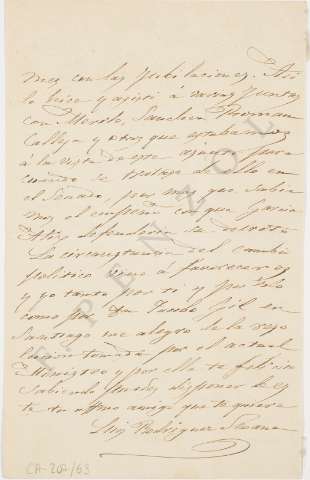 nes con las jubilaciones. Así
lo hice y asistí á varias juntas
con Merelo, Sanchez Roman
Calleja y otros que estabamos
á la vista de este asunto para
cuando se trataje de ello en
el Senado, pues muy que sabia
mos el empeño con que Garcia
Alix defenderia su decreto
La circunstancia del cambio
político vino á favorecer os
y yo tanto por ti y por todo
como por Dn Jacobo Gil en
Santiago me alegro de la reso
lucion tomada por el actual
Ministro y por ello te felicita
sabiendo puedes disponer de es
te tu afmo amigo que te quiere
Luis Rodriguez Seoane
PENZOL
CA-202/63